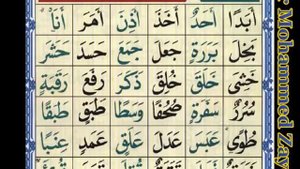 أَبَدًا أَحَدٌ أَخَذَ أَذِنَ أَمَرَ أَنَا
بَخِلَ بَرَرَةٍ جَعَلَ جَمَعَ حَسَدَ حَشَرَ
خَشِيَ خَلَقَ خُلِقَ ذَكَرَ رَفَعَ رَقَبَةٍ
سُرُرٌ سَفَرَةٍ صُحُفًا وَسَطًا طَبَقٍ طَبَقًا
طُوًى عَبَسَ عَدَلَ عَلَقٍ عَمَدٍ عِنَبًا
Mohammed Zay